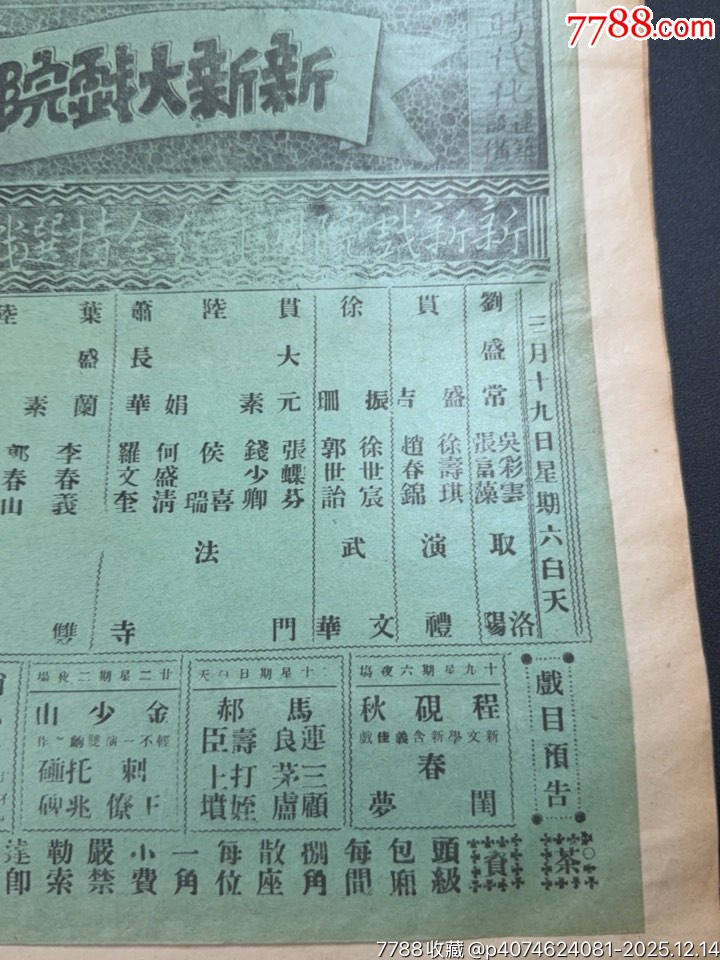 7788.com
時代化
建築
設備
新新大戲院
三月十九日星期六白天
劉盛常 吳彩雲 張富藻 取洛陽
貫盛吉 徐壽琪 趙春錦 演禮
徐振珊 徐世宸 郭世詒 文武華
貫大元 張蝶芬 錢少卿
陸素娟 侯喜瑞 何盛清
蕭長華 羅文奎
法門寺
葉盛蘭 李春義 雙
陸素 郭春山
戲目預告
十九星期六夜場
程硯秋
新文學新含義佳戲
春閨夢
二十星期日白天
馬連良 郝壽臣
三顧茅廬 打姪上墳
廿二星期二夜場
金少山
輕不一演雙齣作
刺王僚 托兆碰碑
茶資
頭級包廂每間捌角
散座每位一角
小費嚴禁勒索
達即
7788收藏@p4074624081-2025.12.14